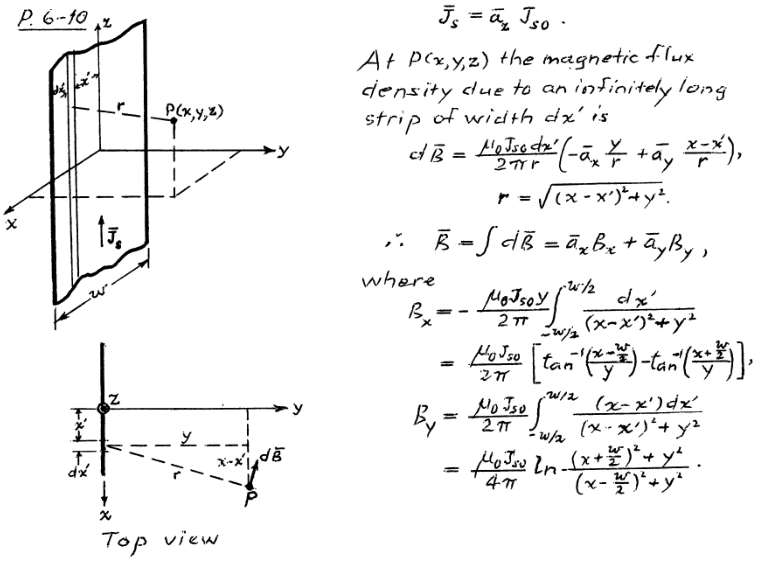 P. 6-10
z
dx'
x'
r
P(x,y,z)
y
x
J̄ₛ
w
z
y
x'
y
dx'
x-x'
dB̄
r
P
x
Top view
J̄ₛ = ā_z Jₛₒ.
At P(x,y,z) the magnetic flux
density due to an infinitely long
strip of width dx' is
dB̄ = μ₀Jₛₒdx'/2πr (-ā_x y/r + ā_y (x-x')/r),
r = √((x-x')²+y²).
∴ B̄ = ∫ dB̄ = ā_x B_x + ā_y B_y,
where
B_x = - μ₀Jₛₒy/2π ∫_{-w/2}^{w/2} dx'/((x-x')²+y²)
= μ₀Jₛₒ/2π [tan⁻¹((x-w/2)/y) - tan⁻¹((x+w/2)/y)],
B_y = μ₀Jₛₒ/2π ∫_{-w/2}^{w/2} (x-x')dx'/((x-x')²+y²)
= μ₀Jₛₒ/4π ln ((x+w/2)²+y²)/((x-w/2)²+y²).